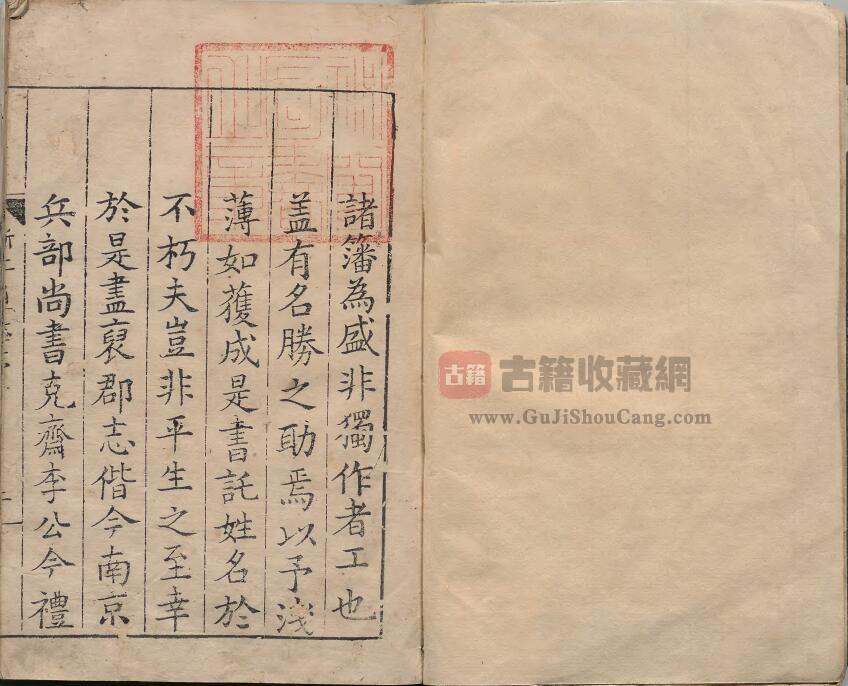 諸籓為盛非獨作者工也
盖有名勝之助焉以予淺
薄如獲成是書託姓名於
不朽夫豈非平生之至幸
於是盡裒郡志偕今南京
兵部尚書克齋李公今禮
古籍 古籍收藏網
www.GuJiShouCang.com